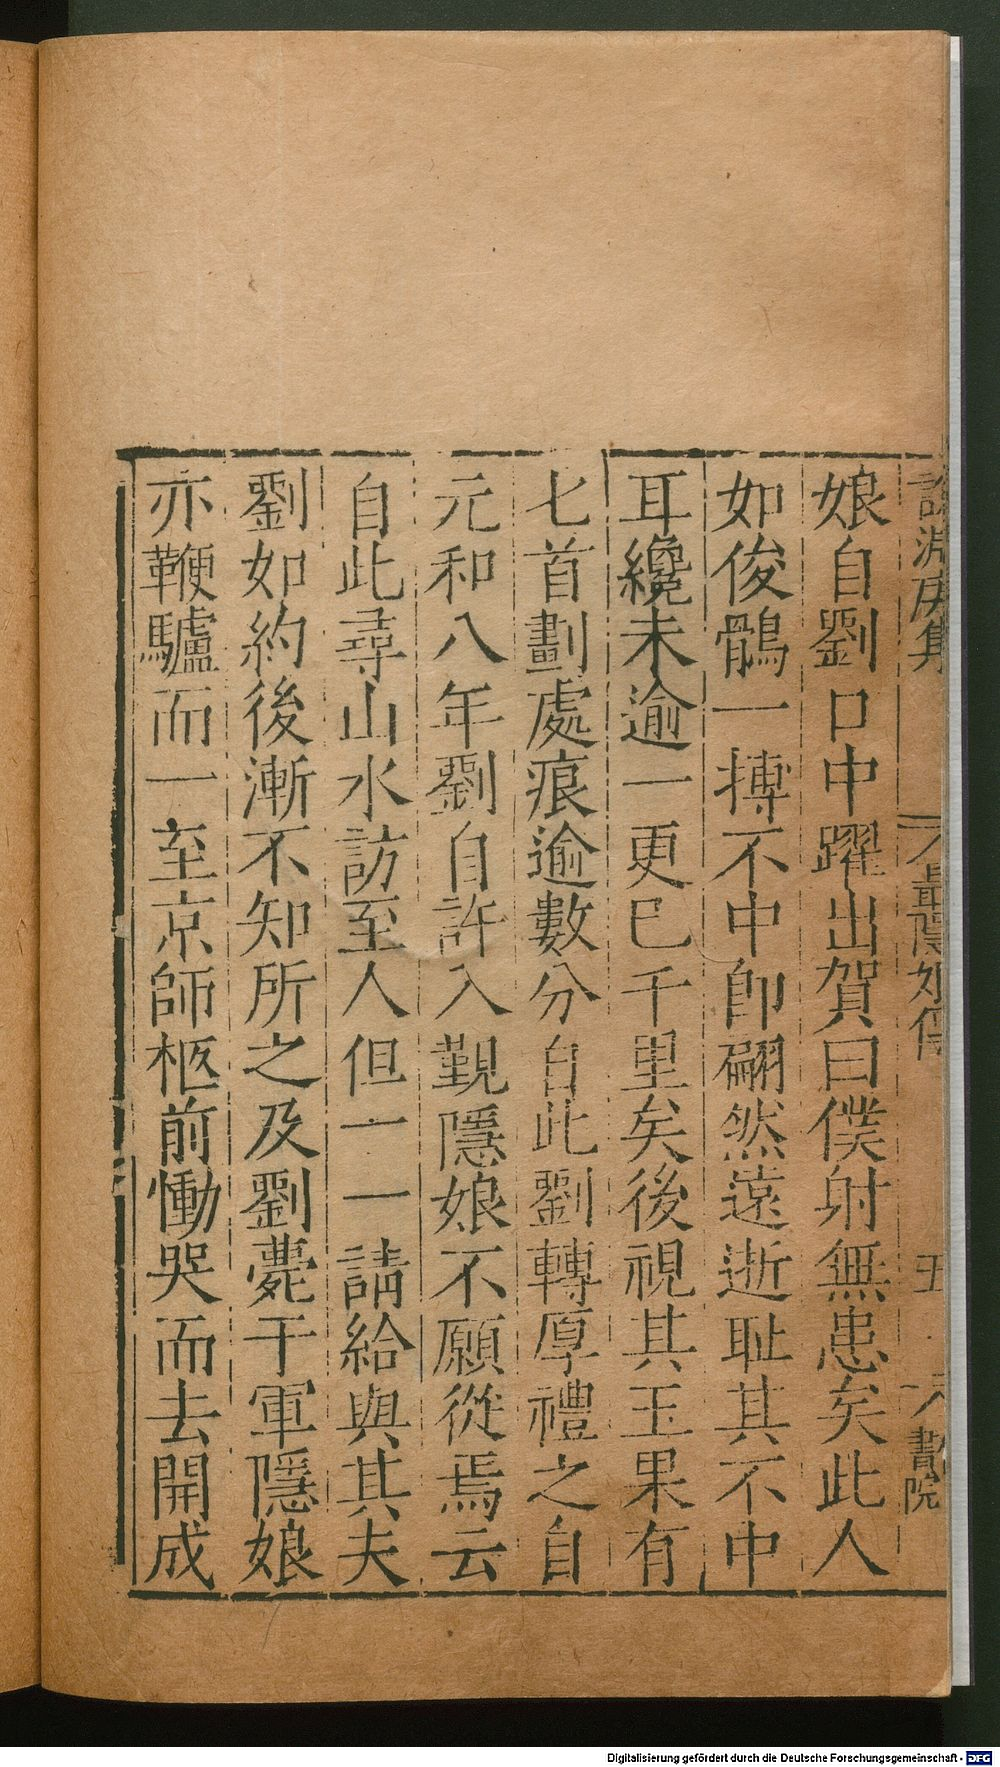 娘自劉口中躍出賀曰僕射無患矣此人
如俊鶻一摶不中卽翩然遠逝耻其不中
耳纔未逾一更已千里矣後視其玉果有
匕首劃處痕逾數分自此劉轉厚禮之自
元和八年劉自許入覲隱娘不願從焉云
自此尋山水訪至人但一一請給與其夫
劉如約後漸不知所之及劉薨于軍隱娘
亦鞭驢而一至京師柩前慟哭而去開成
五
書院
Digitalisierung gefördert durch die Deutsche Forschungsgemeinschaft - DFG